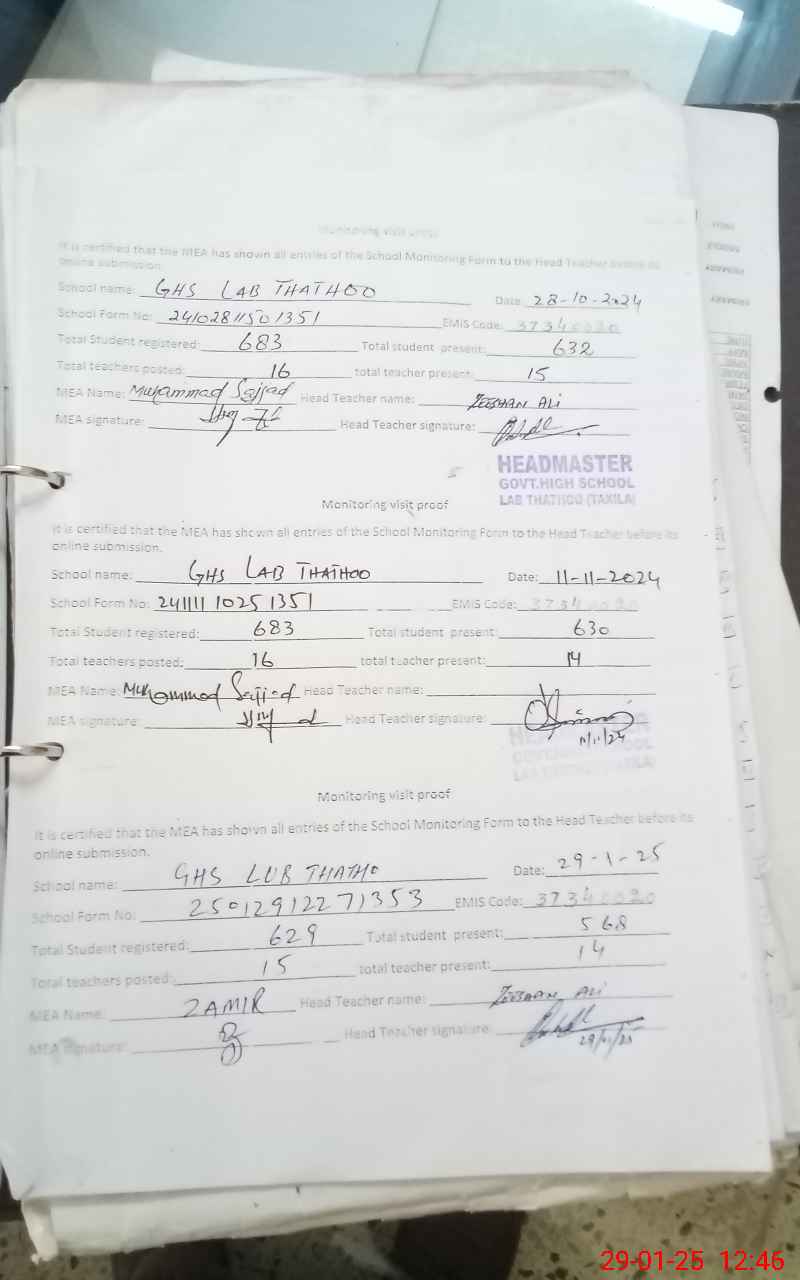 Monitoring visit proof
It is certified that the MEA has shown all entries of the School Monitoring Form to the Head Teacher before its
online submission
School name: GHS LAB THATHOO Date: 28-10-2024
School Form No: 24102811501351 EMIS Code: 37340020
Total Student registered: 683 Total student present: 632
Total teachers posted: 16 total teacher present: 15
MEA Name: Muhammad Sajjad Head Teacher name: ZEESHAN ALI
MEA signature: Head Teacher signature:
HEADMASTER
GOVT.HIGH SCHOOL
LAB THATHOO (TAXILA)
Monitoring visit proof
It is certified that the MEA has shown all entries of the School Monitoring Form to the Head Teacher before its
online submission.
School name: GHS LAB THATHOO Date: 11-11-2024
School Form No: 24111110251351 EMIS Code: 37340020
Total Student registered: 683 Total student present: 630
Total teachers posted: 16 total teacher present: 14
MEA Name: Muhammad Sajjad Head Teacher name:
MEA signature: Head Teacher signature:
11/11/24
HEADMASTER
Monitoring visit proof
It is certified that the MEA has shown all entries of the School Monitoring Form to the Head Teacher before its
online submission.
School name: GHS LUB THATHO Date: 29-1-25
School Form No: 25012912271353 EMIS Code: 37340020
Total Student registered: 629 Total student present: 568
Total teachers posted: 15 total teacher present: 14
MEA Name: ZAMIR Head Teacher name: ZEESHAN ALI
MEA signature: Head Teacher signature:
29-01-25 12:46